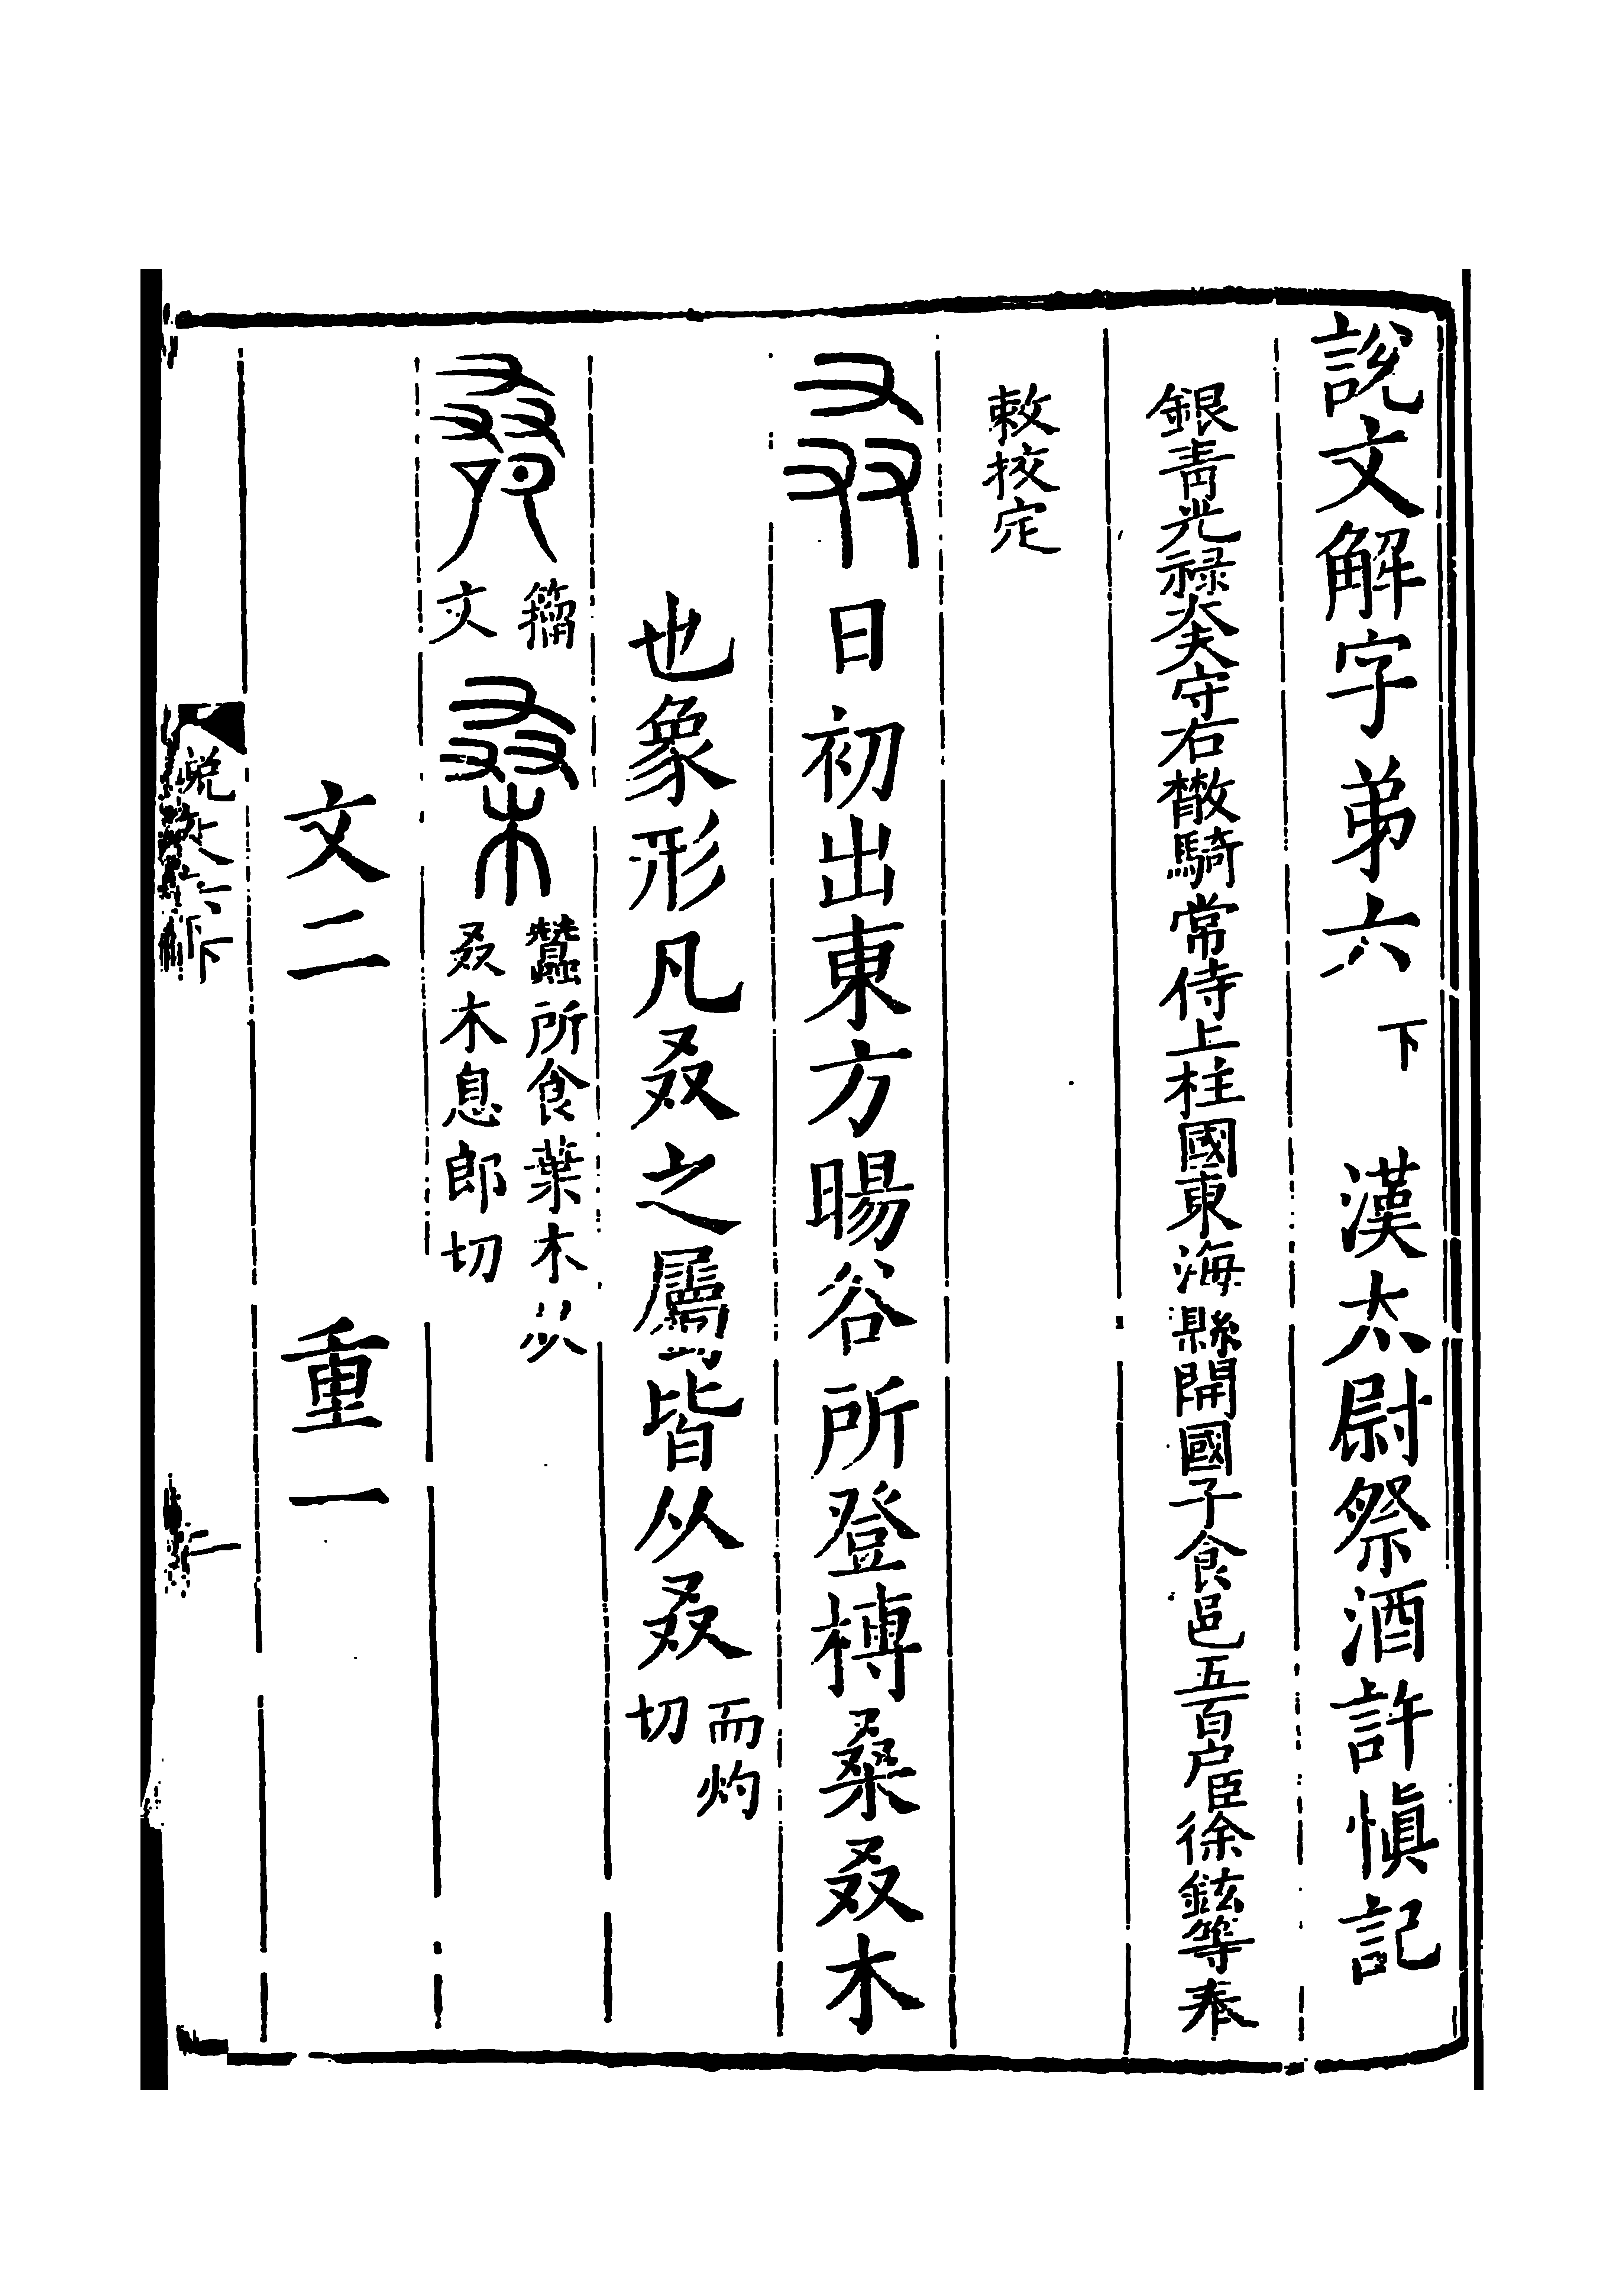 說文解字弟六下 漢太尉祭酒許慎記
銀青光祿大夫守右散騎常侍上柱國東海縣開國子食邑五百户臣徐鉉等奉
敕挍定
叒日初出東方暘谷所登榑桑叒木
也象形凡叒之屬皆从叒而灼切
籒文桑蠶所食葉木从叒木息郎切
文二 重一
說文六下
二